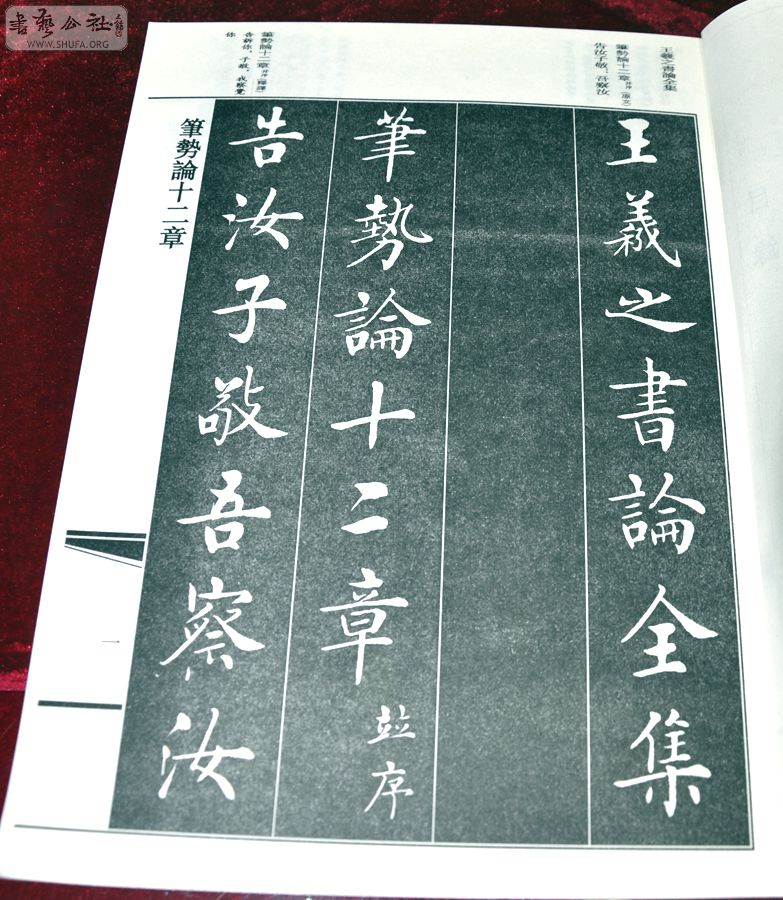 書藝公社
WWW.SHUFA.ORG
王羲之書論全集
筆勢論十二章 並序(原文)
告汝子敬:吾察汝
筆勢論十二章 並序(釋譯)
告訴你,子敬,我察覺
你
王羲之書論全集
筆勢論十二章 並序
告汝子敬吾察汝
筆勢論十二章
一